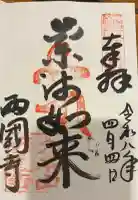 奉拝
令和八年
四月四日
薬師如来
西國寺